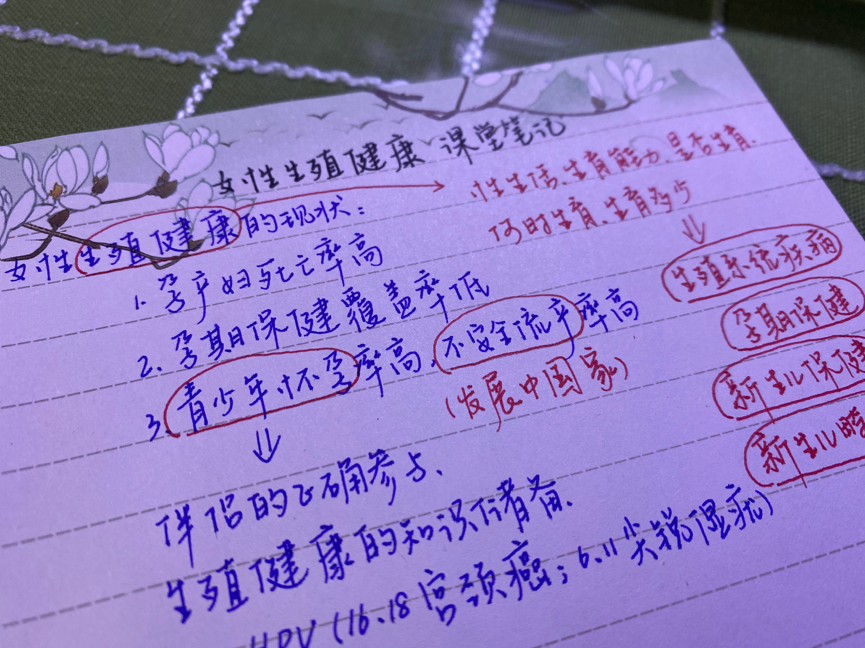 女性生殖健康 课堂笔记
性生活、生育能力、是否生育.
何时生育、生育多少
女性生殖健康的现状:
1. 孕产妇死亡率高
生殖系统疾病
2. 孕期保健覆盖率低
孕期保健
3. 青少年怀孕率高、不安全流产率高
(发展中国家)
新生儿保健
新生儿
伴侣的正确参与、
生殖健康的知识储备.
HPV (16.18宫颈癌; 6.11尖锐湿疣)